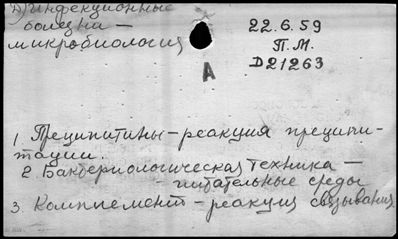 D) инфекционные
болезни —
микробиология
22.6.59
П.М.
D21263
А
1 Преципитины — реакция преципи-
тации.
2 Бактериологическая техника —
— питательные среды
3 Комплемент — реакция связывания